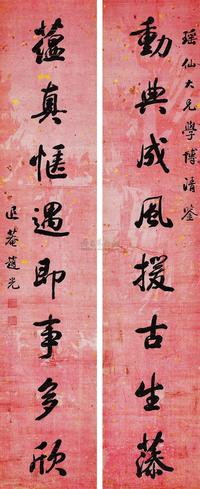 瑤仙大兄學博清鑒
動典成風援古生藻
蘊真愜遇即事多欣
退菴趙光